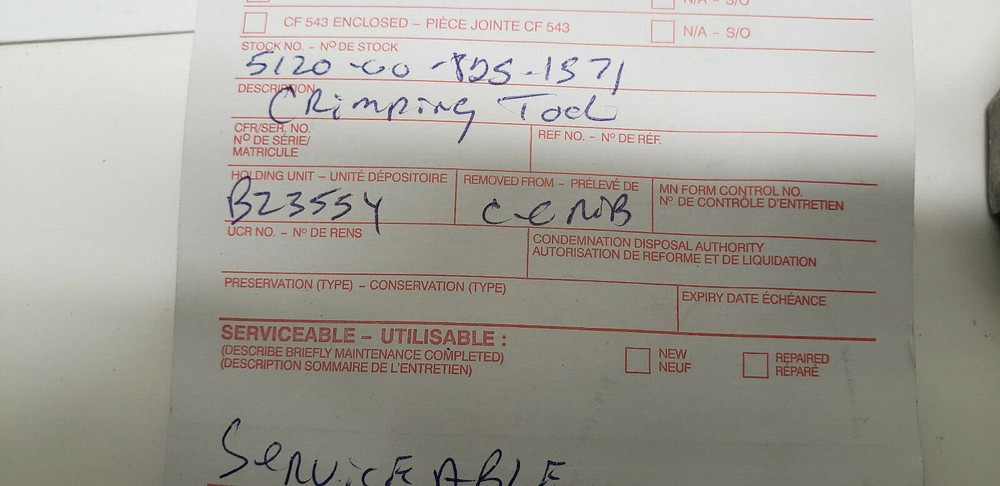 N/A – S/O
CF 543 ENCLOSED – PIÈCE JOINTE CF 543
N/A – S/O
STOCK NO. – Nº DE STOCK
5120-00-825-1571
DESCRIPTION
CRimping Tool
CFR/SER. NO.
Nº DE SÉRIE/
MATRICULE
REF NO. – Nº DE RÉF.
HOLDING UNIT – UNITÉ DÉPOSITOIRE
B2355Y
REMOVED FROM – PRÉLEVÉ DE
MN FORM CONTROL NO.
Nº DE CONTRÔLE D'ENTRETIEN
UCR NO. – Nº DE RENS
CONDEMNATION DISPOSAL AUTHORITY
AUTORISATION DE REFORME ET DE LIQUIDATION
PRESERVATION (TYPE) – CONSERVATION (TYPE)
EXPIRY DATE ÉCHÉANCE
SERVICEABLE – UTILISABLE :
(DESCRIBE BRIEFLY MAINTENANCE COMPLETED)
(DESCRIPTION SOMMAIRE DE L'ENTRETIEN)
NEW
NEUF
REPAIRED
RÉPARÉ
SERViCEABLE